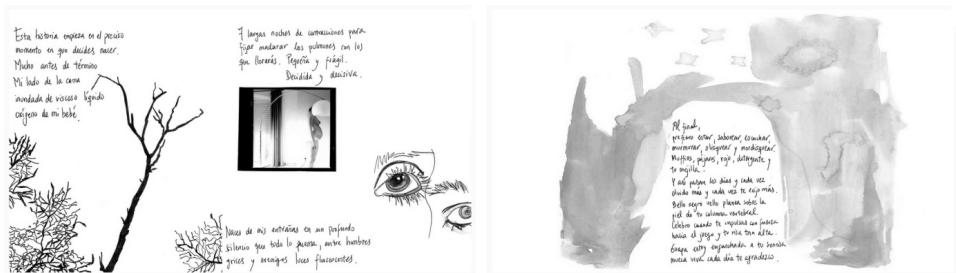 Esta historia empieza en el preciso
momento en que decides nacer.
Mucho antes de término
Mi lado de la cama
inundada de viscoso líquido
oxígeno de mi bebé.
7 largas noches de contracciones para
fijar madurar los pulmones con los
que llorarás. Pequeña y frágil.
Decidida y decisiva.
Naces de mis entrañas en un profundo
silencio que todo lo, entre hombres
grises y enemigas luces fluorescentes.
Al final,
prefiero estar, saborear, escuchar,
murmurar, olisquear y mordisquear.
Muffins, pájaros, rojo, detergente y
tu mejilla.
Y así pasan los días y cada vez
olvido más y cada vez te cojo más.
Bello negro vello planea sobre la
piel de tu columna vertebral.
Celebro cuando te impulsas con fuerza
hacia el juego y tu risa tan alta.
estoy enganchada a tu sonrisa
nueva vida cada día te agradezco.